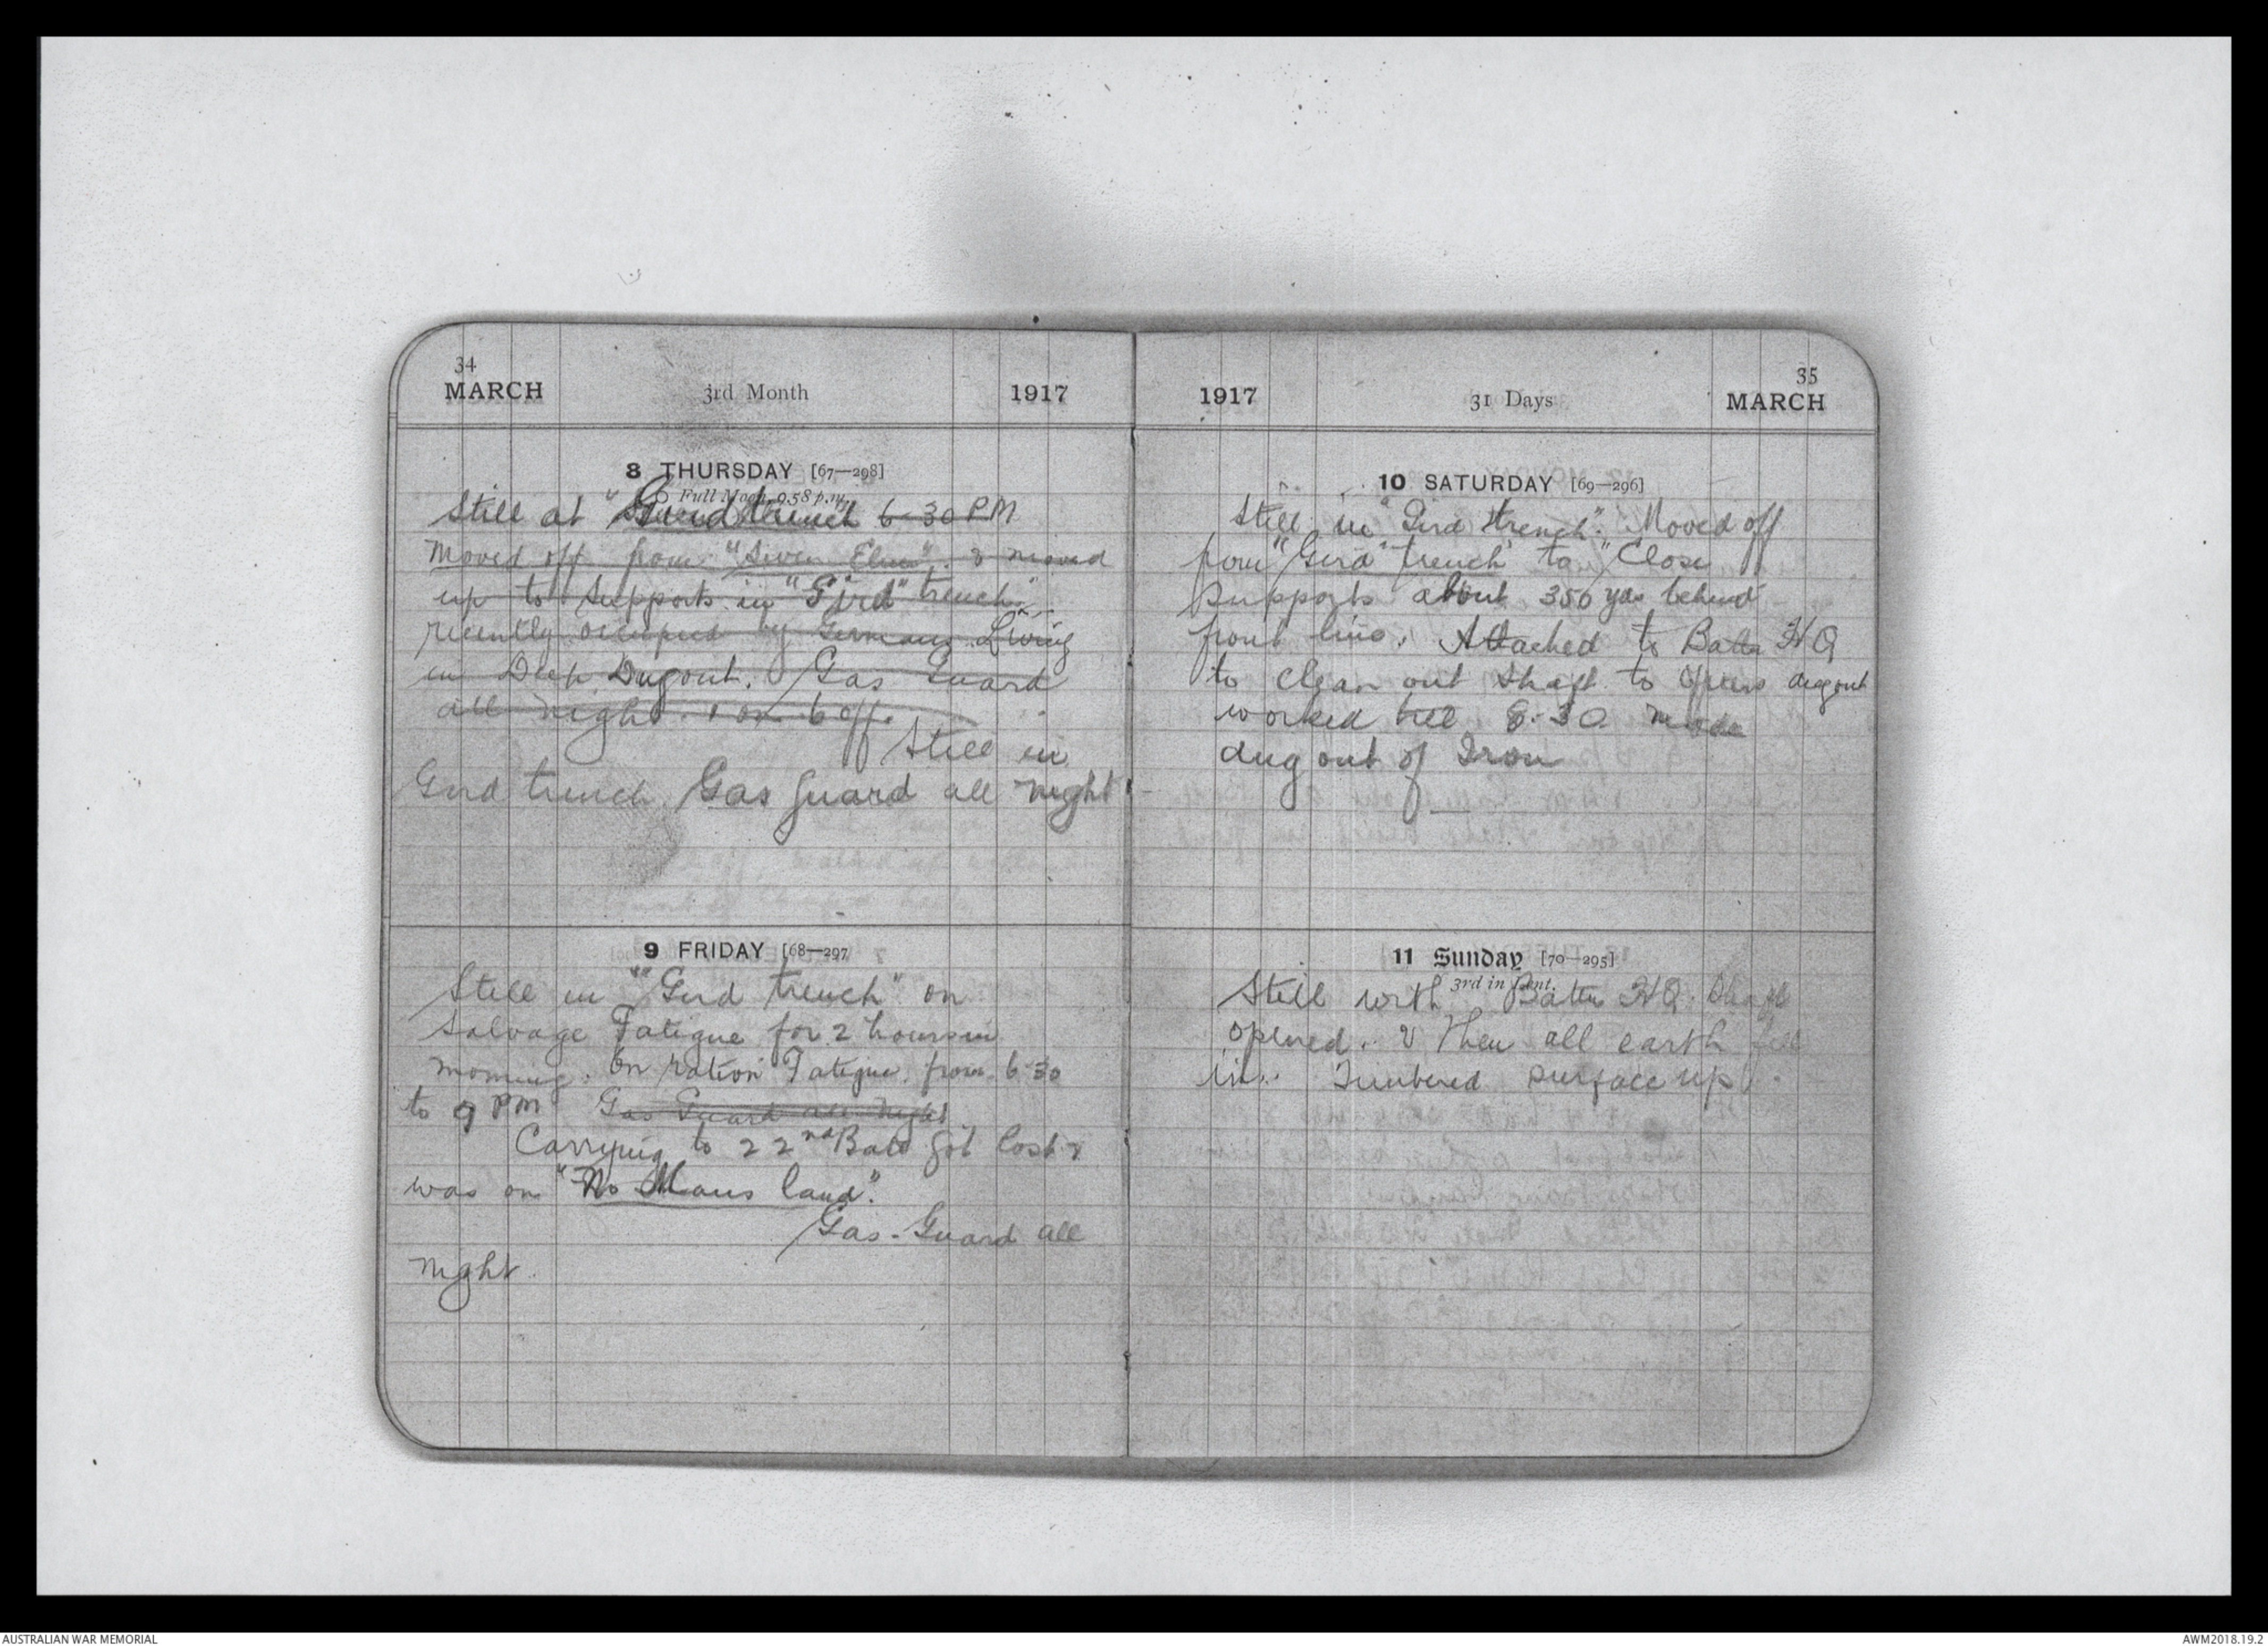 34
MARCH 3rd Month 1917
8 THURSDAY [67—298]
Full Moon, 9.58 p.m.
Still at "Gird trench 6-30 PM
Moved off from "Seven Elms" & moved
up to Supports in "Gird" trench"
recently occupied by Germans Living
in Deep Dugout. Gas Guard
all night. 1 on 6 off.
Still in
Gird trench. Gas guard all night
9 FRIDAY [68—297
Still in "Gird trench" on
Salvage Fatigue for 2 hours in
morning. On ration Fatigue from 6-30
to 9 PM Gas Guard all night
Carrying to 22nd Batt got lost &
was on "No Mans land".
Gas-Guard all
night.
35
1917 31 Days MARCH
10 SATURDAY [69—296]
Still in "Gird trench". Moved off
from "Gird" trench to "Close
Supports about 350 yds behind
front line. Attached to Battn HQ
to clean out Shaft to dugout
worked till 8-30 made
dug out of Iron
11 Sunday [70—295]
3rd in Lent.
Still with Battn HQ. Shaft
opened. & then all earth fell
in. Timbered surface up.
AUSTRALIAN WAR MEMORIAL
AWM2018.19.2